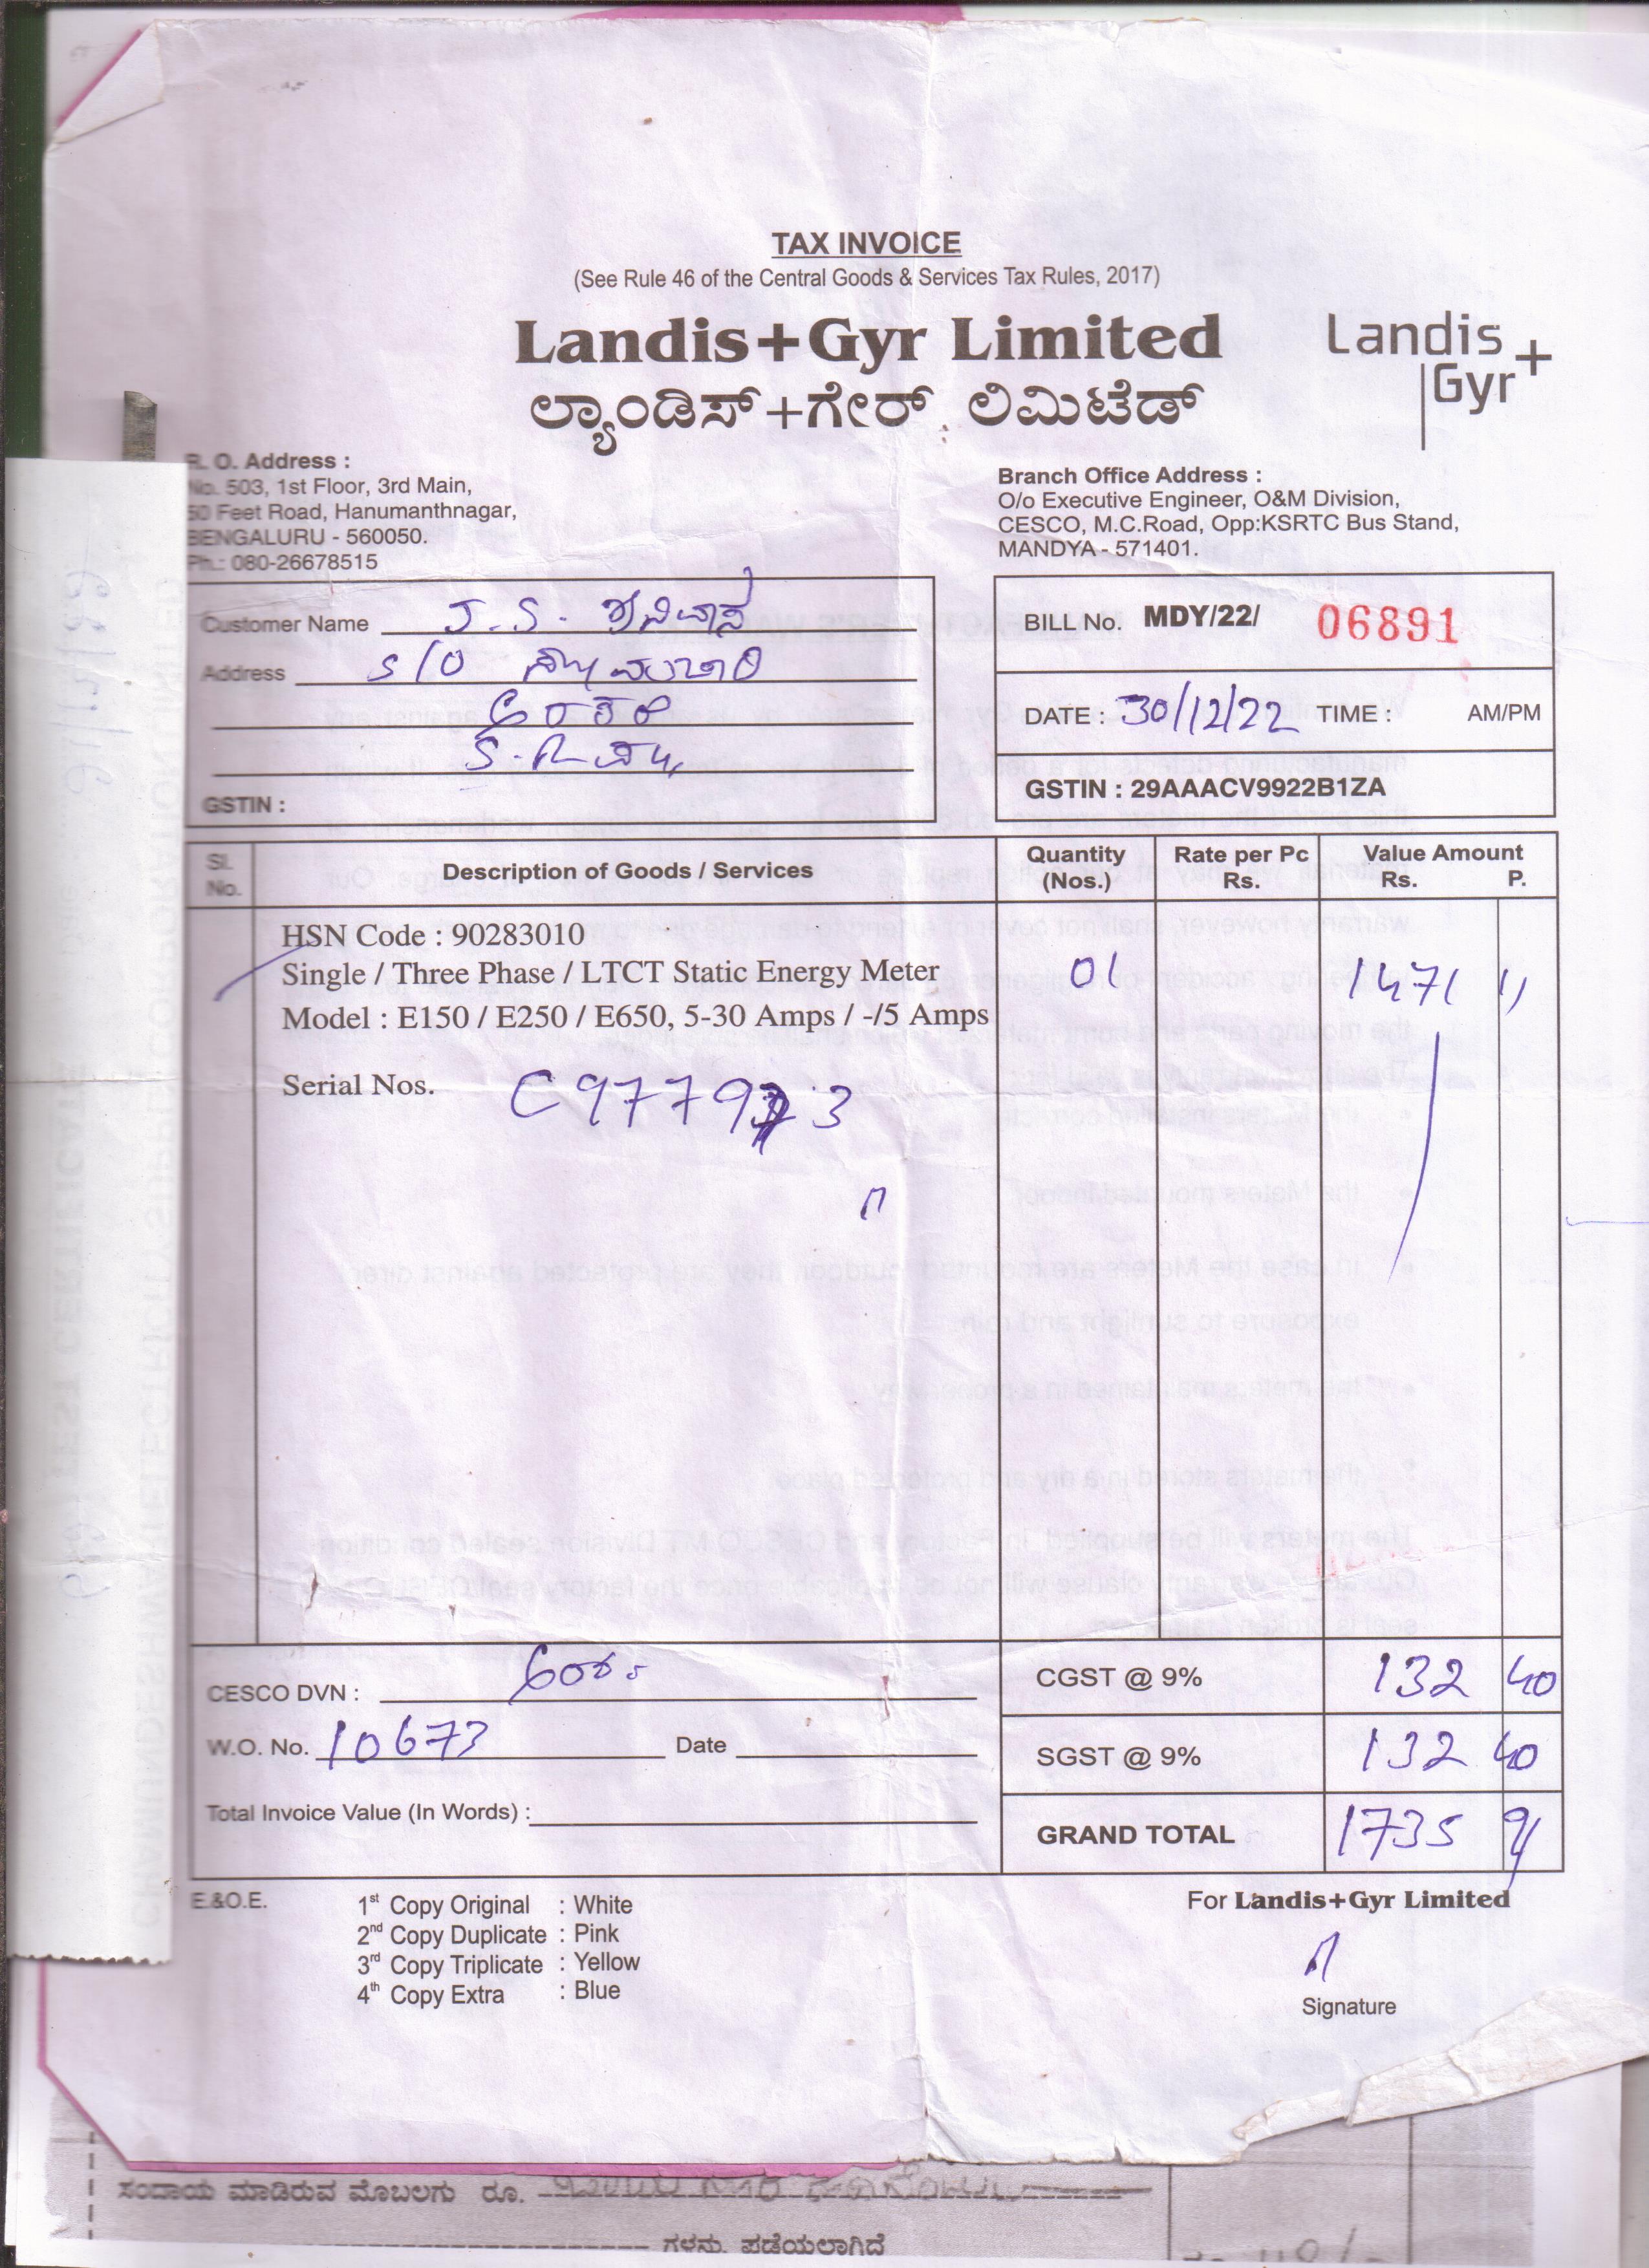 TAX INVOICE
(See Rule 46 of the Central Goods & Services Tax Rules, 2017)
Landis+Gyr Limited
ಲ್ಯಾಂಡಿಸ್+ಗೇರ್ ಲಿಮಿಟೆಡ್
Landis+
Gyr
R. O. Address :
No. 503, 1st Floor, 3rd Main,
50 Feet Road, Hanumanthnagar,
BENGALURU - 560050.
Ph.: 080-26678515
Branch Office Address :
O/o Executive Engineer, O&M Division,
CESCO, M.C.Road, Opp:KSRTC Bus Stand,
MANDYA - 571401.
Customer Name J.S. ಶ್ರೀನಿವಾಸ
Address S/O
GSTIN :
BILL No. MDY/22/ 06891
DATE : 30/12/22 TIME : AM/PM
GSTIN : 29AAACV9922B1ZA
Sl. No. Description of Goods / Services Quantity (Nos.) Rate per Pc Rs. Value Amount Rs. P.
HSN Code : 90283010
Single / Three Phase / LTCT Static Energy Meter 01 1471 11
Model : E150 / E250 / E650, 5-30 Amps / -/5 Amps
Serial Nos.
CESCO DVN :
CGST @ 9% 132 40
W.O. No. 10673 Date
SGST @ 9% 132 40
Total Invoice Value (In Words) :
GRAND TOTAL 1735 91
E.&O.E.
1st Copy Original : White
2nd Copy Duplicate : Pink
3rd Copy Triplicate : Yellow
4th Copy Extra : Blue
For Landis+Gyr Limited
Signature
ಸಂದಾಯ ಮಾಡಿರುವ ಮೊಬಲಗು ರೂ.
ಗಳನ್ನು ಪಡೆಯಲಾಗಿದೆ